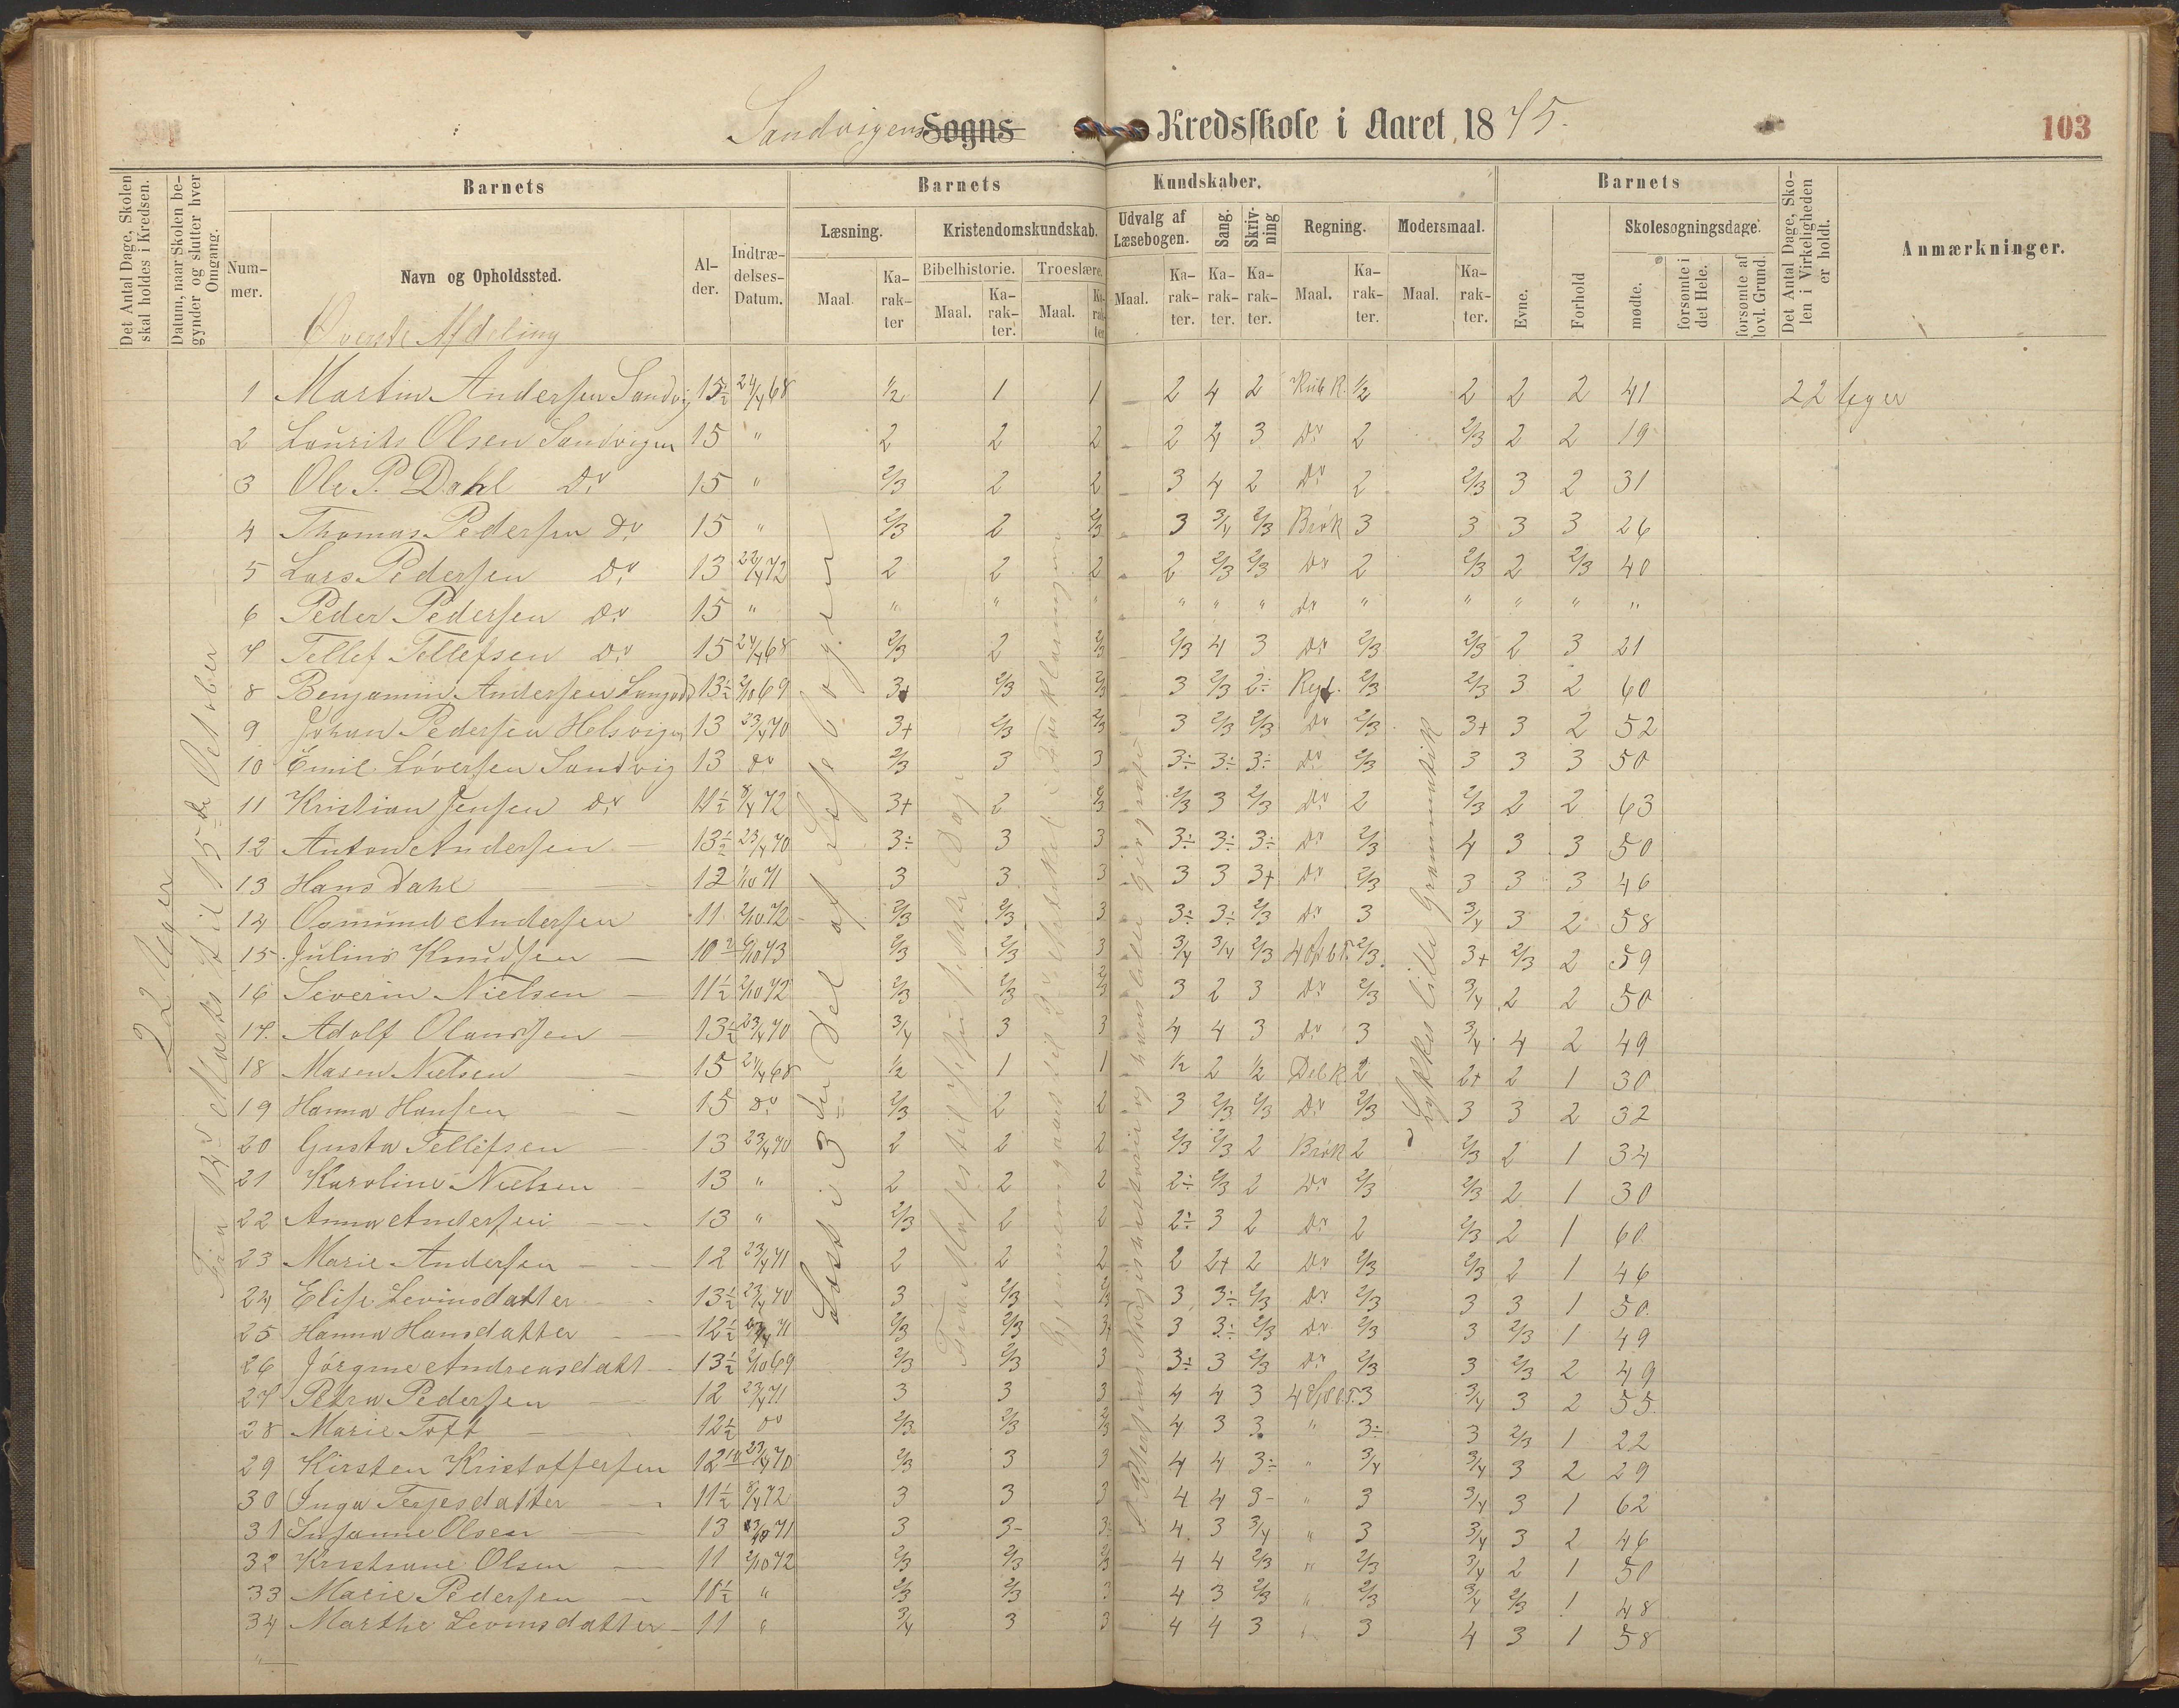 Sandvigens Sogns Kredsskole i Aaret 1875. 103
Det Antal Dage, Skolen skal holdes i Kredsen.
Datum, naar Skolen begynder og slutter hver Omgang.
Barnets
Barnets Kundskaber.
Barnets
Det Antal Dage, Skolen i Virkeligheden er holdt.
Anmærkninger.
Nummer.
Navn og Opholdssted.
Alder.
Indtrædelses-Datum.
Læsning.
Kristendomskundskab.
Udvalg af Læsebogen.
Sang.
Skrivning
Regning.
Modersmaal.
Evne.
Forhold
Skolesøgningsdage.
Bibelhistorie.
Troeslære.
Maal. Karakter
Maal. Karakter.
Maal. Karakter
Maal. Karakter.
Karakter.
Karakter.
Maal. Karakter.
Maal. Karakter.
mødte.
forsømte i det Hele.
forsømte af lovl. Grund.
Øverste Afdeling
22 Uger
Læst i 3die Del af Læsebogen
1 Martin Andersen Sandvig 15½ 24/4 68 ½ 1 1 2 4 2 ½ 2 2 2 41 22 Uger
2 Laurits Olsen Sandvigen 15 " 2 2 2 2 4 3 Do 2 2/3 2 2 19
3 Ole P. Dahl Do 15 " 2/3 2 2 3 4 2 Do 2 2/3 3 2 31
4 Thomas Pedersen Do 15 " 2/3 2 2/3 3 3/4 2/3 Brøk 3 3 3 3 26
5 Lars Pedersen Do 13 22/4 72 2 2 2 2 2/3 2/3 Do 2 2/3 2 2/3 40
6 Peder Pedersen Do 15 " " " " " " " do " " " " "
7 Tellef Tellefsen Do 15 24/4 68 2/3 2 2/3 2/3 4 3 Do 2/3 2/3 2 3 21
8 Benjamin Andersen 13½ 2/10 69 3+ 2/3 2/3 3 2/3 2÷ 2/3 2/3 3 2 60
9 Johan Pedersen 13 23/4 70 3+ 2/3 2/3 3 2/3 2/3 Do 2/3 3+ 3 2 52
10 Emil Løversen Sandvig 13 do 2/3 3 3 3÷ 3÷ 3÷ Do 2/3 3 3 3 50
11 Kristian Jensen Do 11½ 8/4 72 3+ 2 2/3 2/3 3 2/3 Do 2 2/3 2 2 63
12 Anton Andersen 13½ 23/4 70 3÷ 3 3 3÷ 3÷ 3÷ Do 2/3 4 3 3 50
13 Hans Dahl 12 1/10 71 3 3 3 3 3 3+ Do 2/3 3 3 3 46
14 Osmund Andersen 11 2/10 72 2/3 2/3 3 3÷ 3÷ 2/3 Do 3 3/4 3 2 58
15 Julius Knudsen 10 6/10 73 2/3 2/3 3 3/4 3/4 2/3 2/3 3+ 2/3 2 59
16 Severin Nielsen 11½ 2/10 72 2/3 2/3 2/3 3 2 3 Do 2/3 3/4 2 2 50
17 Adolf Olaussen 13½ 23/4 70 3/4 3 3 4 4 3 Do 3 3/4 4 2 49
18 Maren Nielsen 15 24/4 68 ½ 1 1 ½ 2 ½ 2 2+ 2 1 30
19 Hanna Hansen 15 do 2/3 2 2 3 2/3 2/3 Do 2/3 3 3 2 32
20 Gusta Tellefsen 13 23/4 70 2 2 2 2/3 2/3 2 Brøk 2 2/3 2 1 34
21 Karoline Nielsen 13 " 2 2 2 2÷ 2/3 2 Do 2/3 2/3 2 1 30
22 Anna Andersen 13 " 2/3 2 2 2÷ 3 2 Do 2 2/3 2 1 60
23 Marie Andersen 12 23/4 71 2 2 2 2 2+ 2 Do 2/3 2/3 2 1 46
24 Elise Levinsdatter 13½ 23/4 70 3 2/3 2/3 3 3÷ 2/3 Do 2/3 3 3 1 50
25 Hanna Hansdatter 12½ 23/4 71 2/3 2/3 3/4 3 3÷ 2/3 Do 2/3 3 2/3 1 49
26 Jørgine Andreasdatt 13½ 2/10 69 2/3 2/3 3 3÷ 3 2/3 Do 2/3 3 2/3 2 49
27 Petra Pedersen 12 23/4 71 3 3 3 4 4 3 3 3/4 3 2 55
28 Marie Toft 12½ do 2/3 2/3 2/3 4 3 3 " 3÷ 3 2/3 1 22
29 Kirsten Kristoffersen 12 23/4 70 2/3 3 3 4 4 3÷ " 3/4 3/4 3 2 29
30 Inga Terjesdatter 11½ 8/4 72 3 3 3 4 4 3- " 3 3/4 3 1 62
31 Susanne Olsen 13 71 3 3- 3 4 3 3/4 " 3 3/4 3 2 46
32 Kristiane Olsen 11 2/10 72 2/3 2/3 2/3 4 4 2/3 " 2/3 3/4 2 1 50
33 Marie Pedersen 10½ " 2/3 2/3 3 4 3 2/3 " 2/3 3/4 2/3 1 48
34 Marthe Levinsdatter 11 " 3/4 3 3 4 4 3 " 3 4 3 1 58